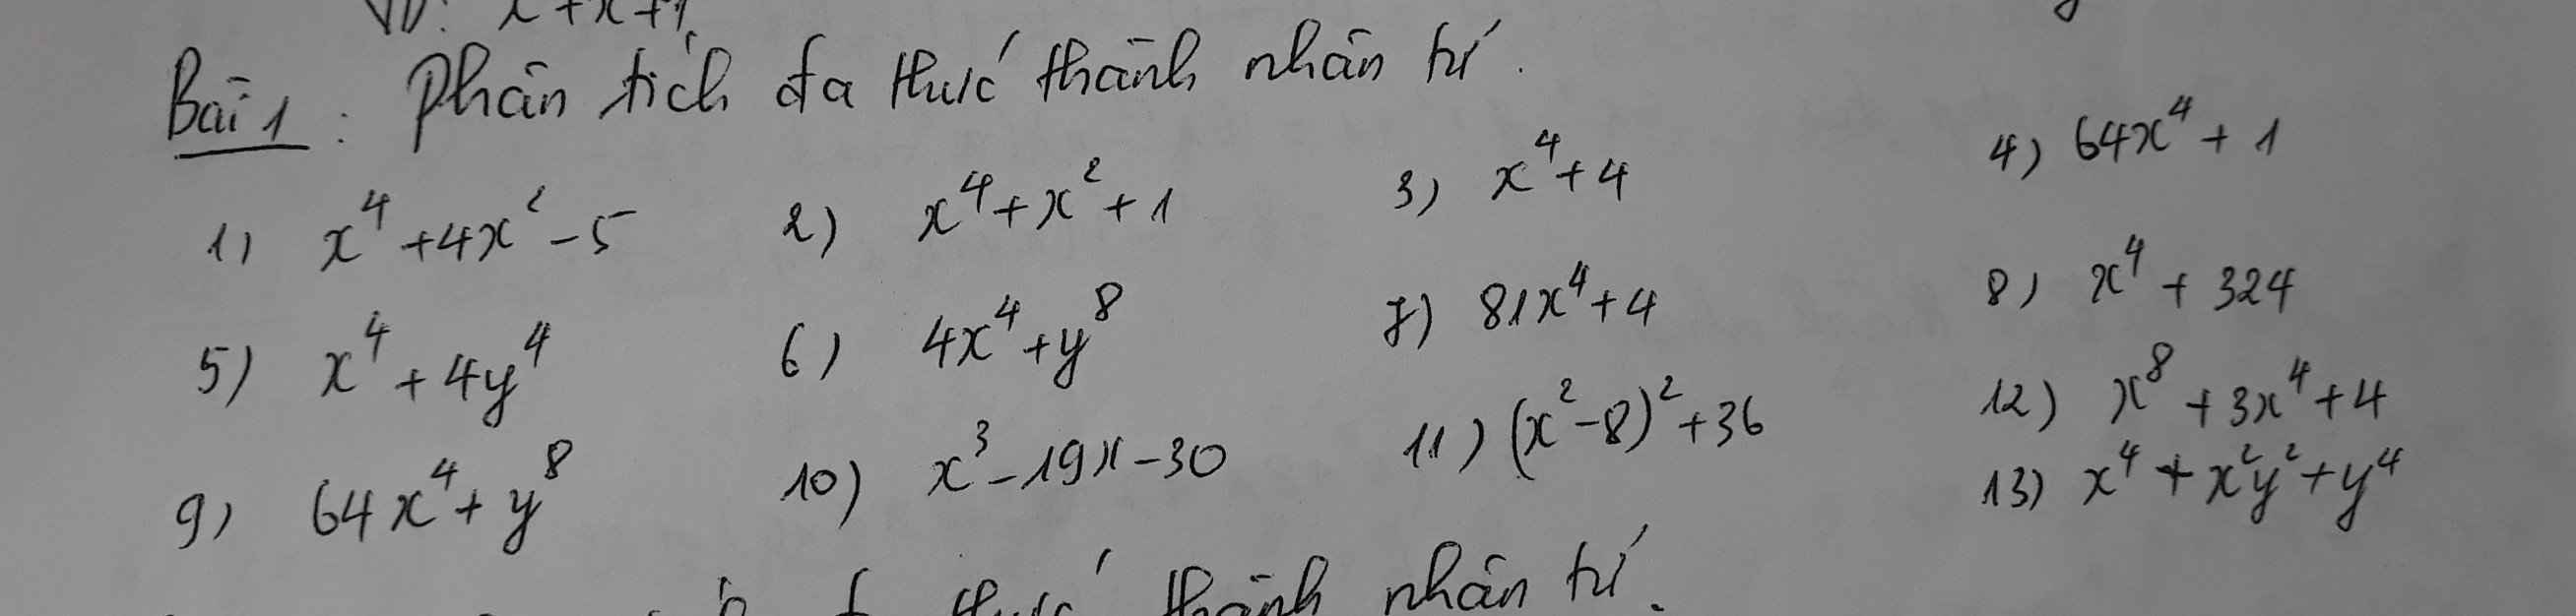 VD: x + x + 1
Bài 1 : Phân tích đa thức thành nhân tử.
1) x⁴ + 4x² - 5 2) x⁴ + x² + 1 3) x⁴ + 4 4) 64x⁴ + 1
5) x⁴ + 4y⁴ 6) 4x⁴ + y⁸ 7) 81x⁴ + 4 8) x⁴ + 324
9) 64x⁴ + y⁸ 10) x³ - 19x - 30 11) (x² - 8)² + 36 12) x⁸ + 3x⁴ + 4
13) x⁴ + x²y² + y⁴
thức thành nhân tử.